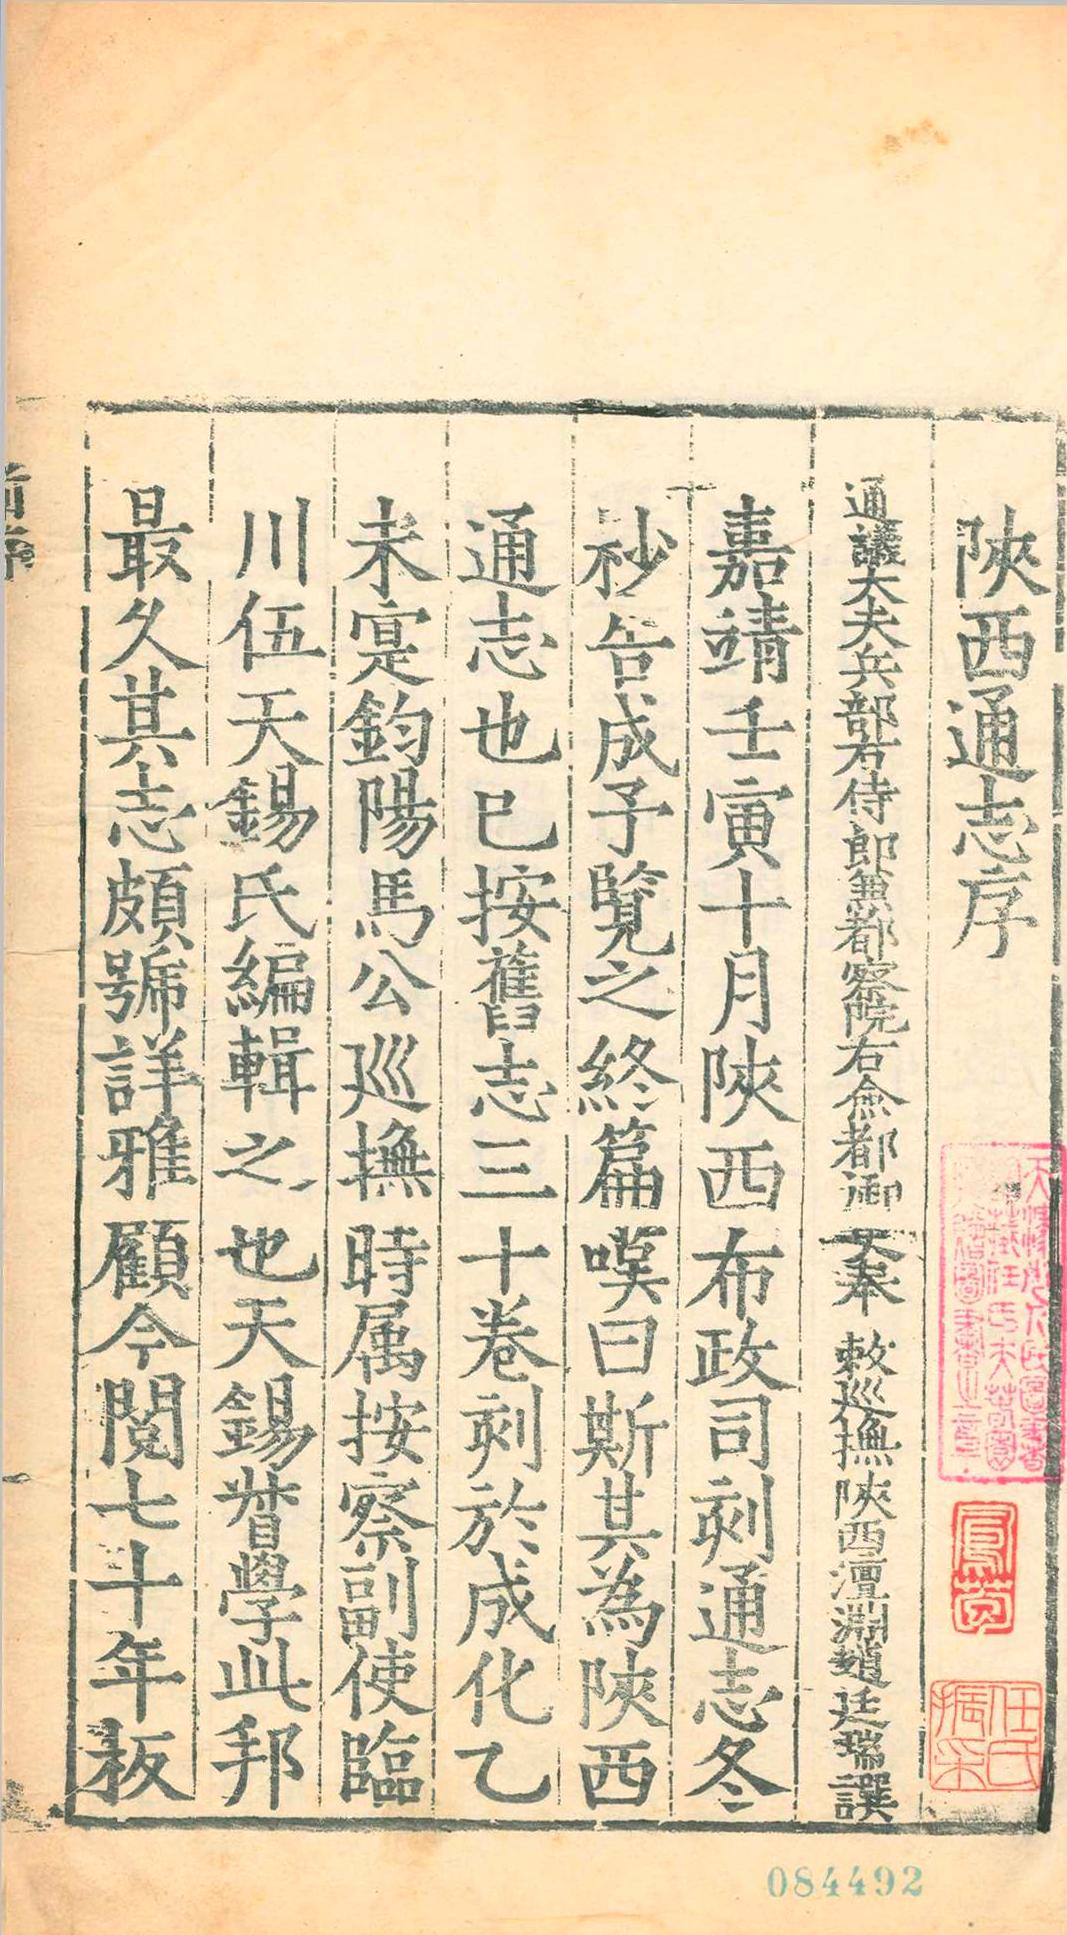 陝西通志序
通議大夫兵部右侍郎兼都察院右僉都御史奉 敕巡撫陝西澶淵趙廷瑞譔
嘉靖壬寅十月陝西布政司刻通志冬
杪告成予覽之終篇嘆曰斯其為陝西
通志也已按舊志三十卷刻於成化乙
未寔鈞陽馬公巡撫時属按察副使臨
川伍天錫氏編輯之也天錫督學此邦
最久其志頗號詳雅顧今閱七十年板
前序
任氏
振采
084492